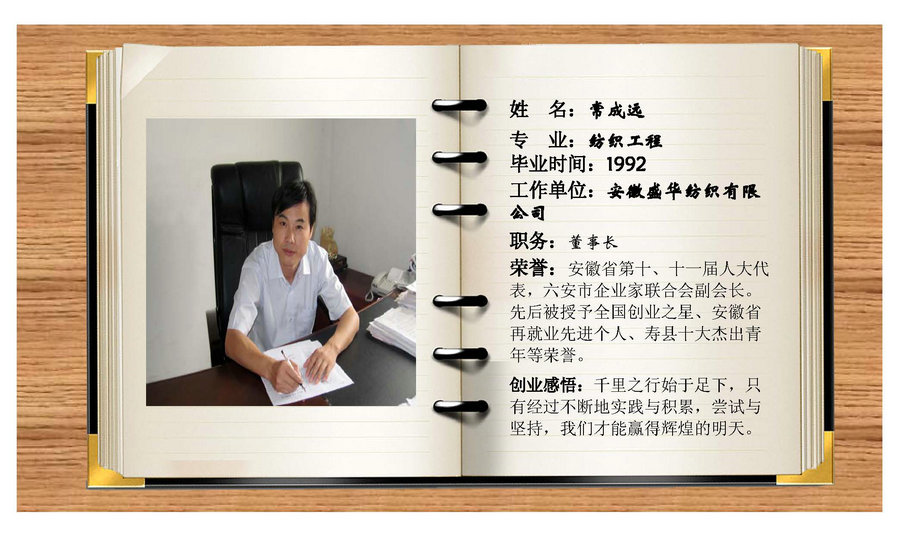 姓　名：常成远
专　业：纺织工程
毕业时间：1992
工作单位：安徽盛华纺织有限
公司
职务：董事长
荣誉：安徽省第十、十一届人大代
表，六安市企业家联合会副会长。
先后被授予全国创业之星、安徽省
再就业先进个人、寿县十大杰出青
年等荣誉。
创业感悟：千里之行始于足下，只
有经过不断地实践与积累，尝试与
坚持，我们才能赢得辉煌的明天。